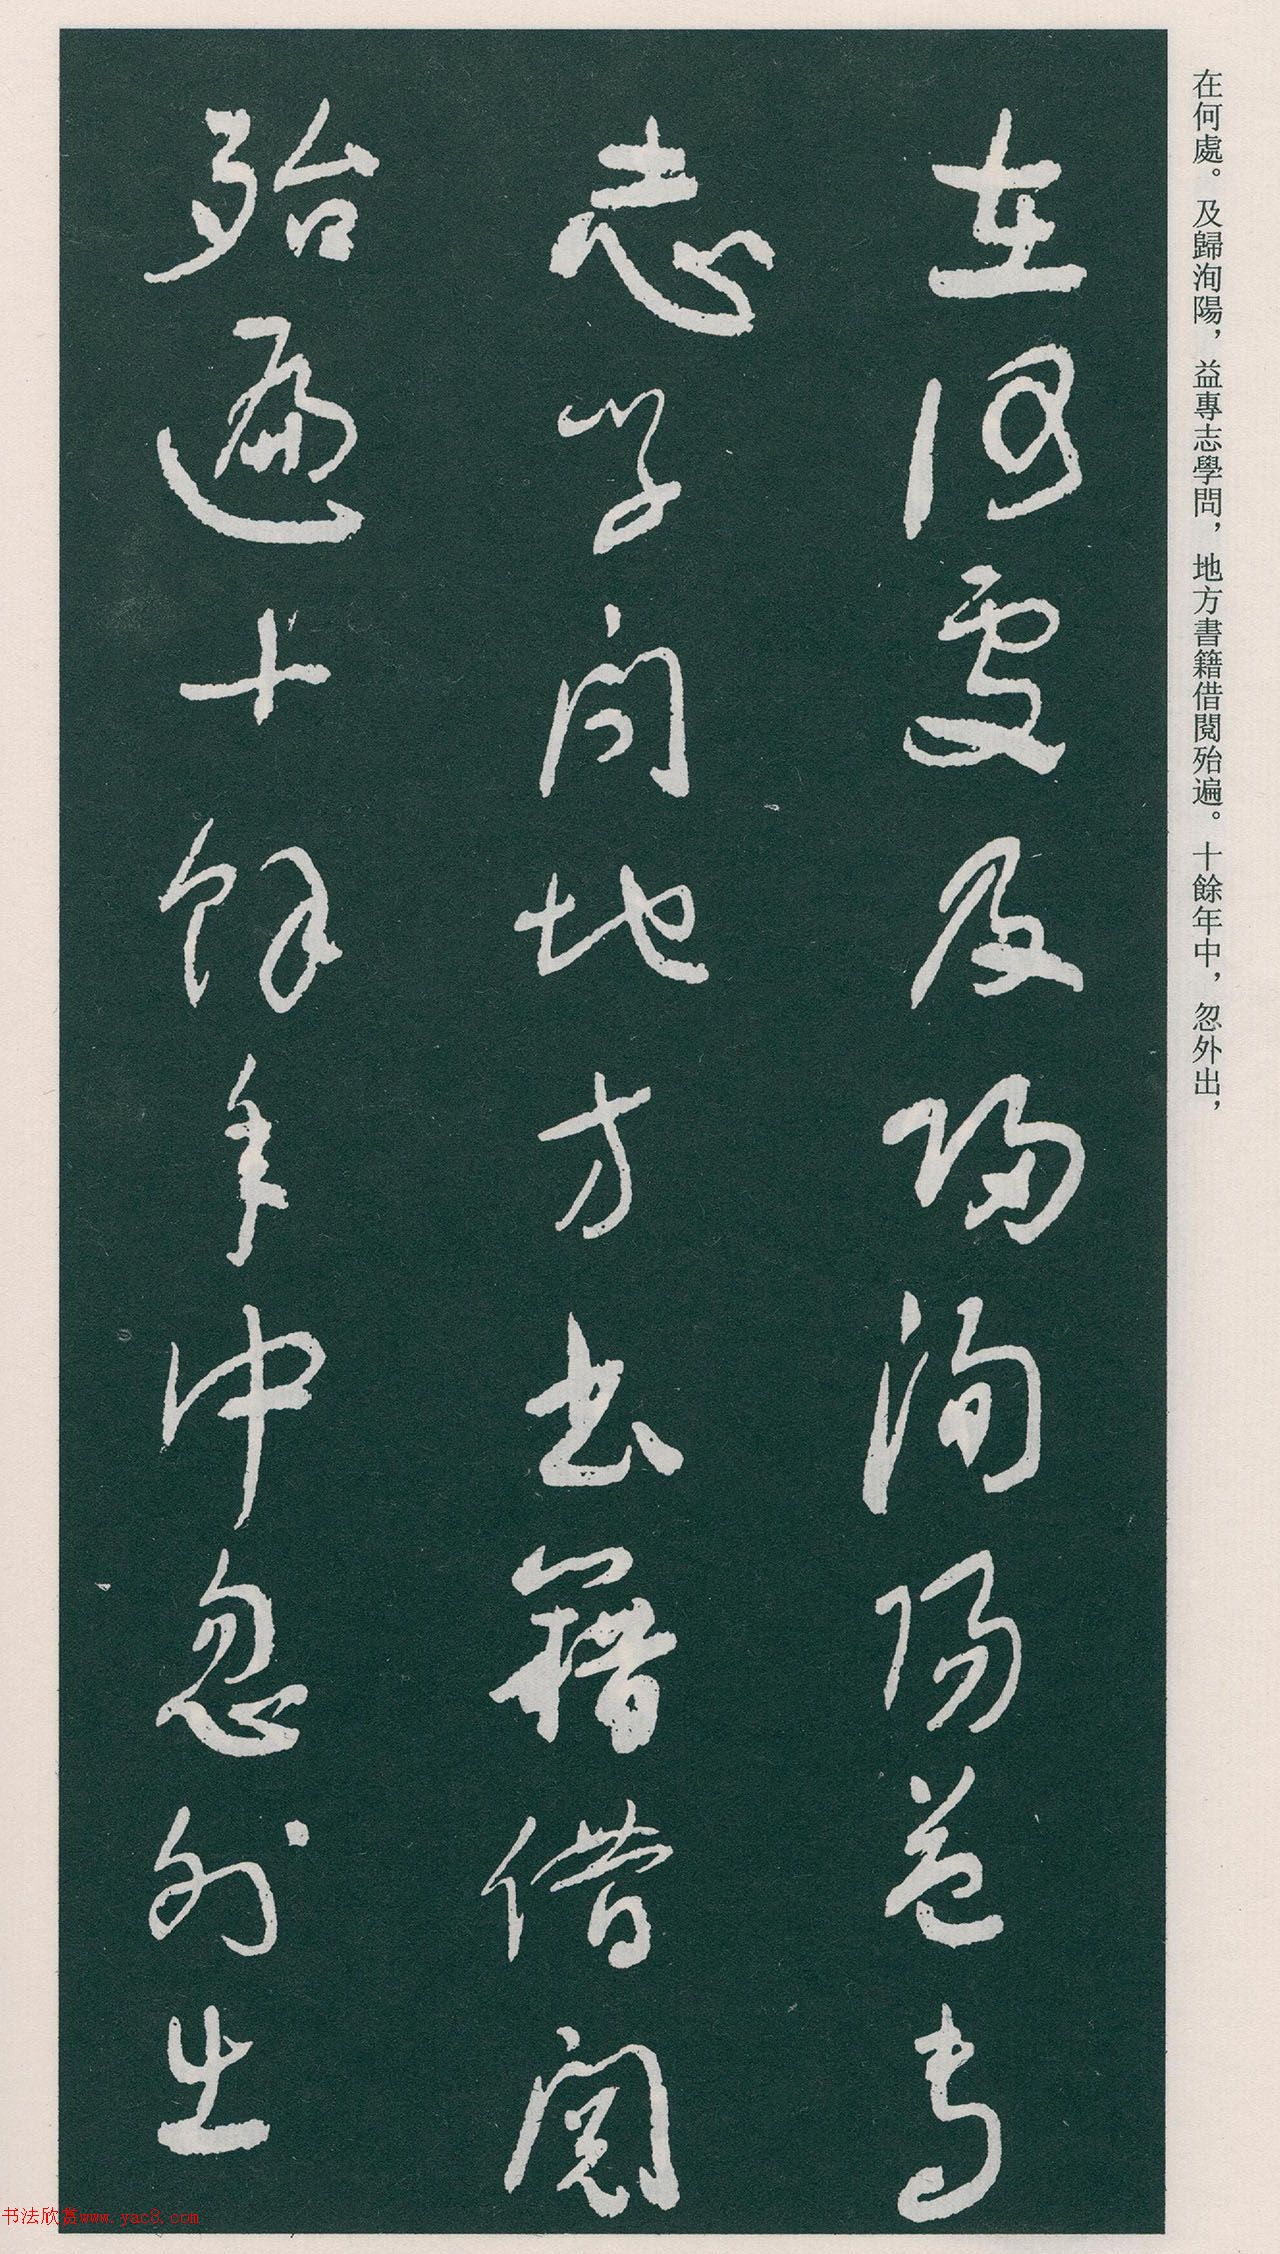 在何處。及歸洵陽，益專志學問，地方書籍借閱殆遍。十餘年中，忽外出，
在何處及歸洵陽益專
志學問地方書籍借閱
殆遍十餘年中忽外出
书法欣赏www.yac8.com